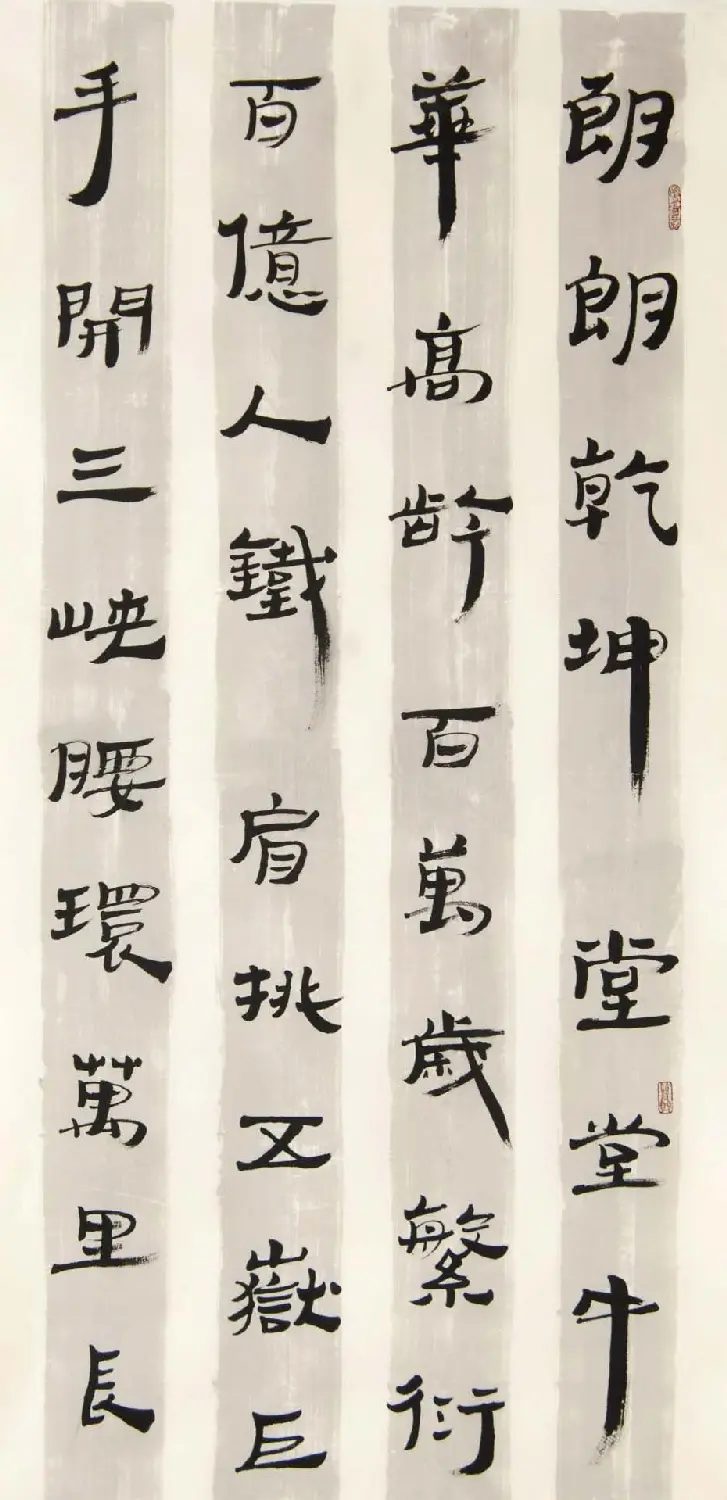 朗朗乾坤堂堂牛
華高齡百萬歲繁衍
百億人鐵肩挑五嶽巨
手開三峽腰環萬里長